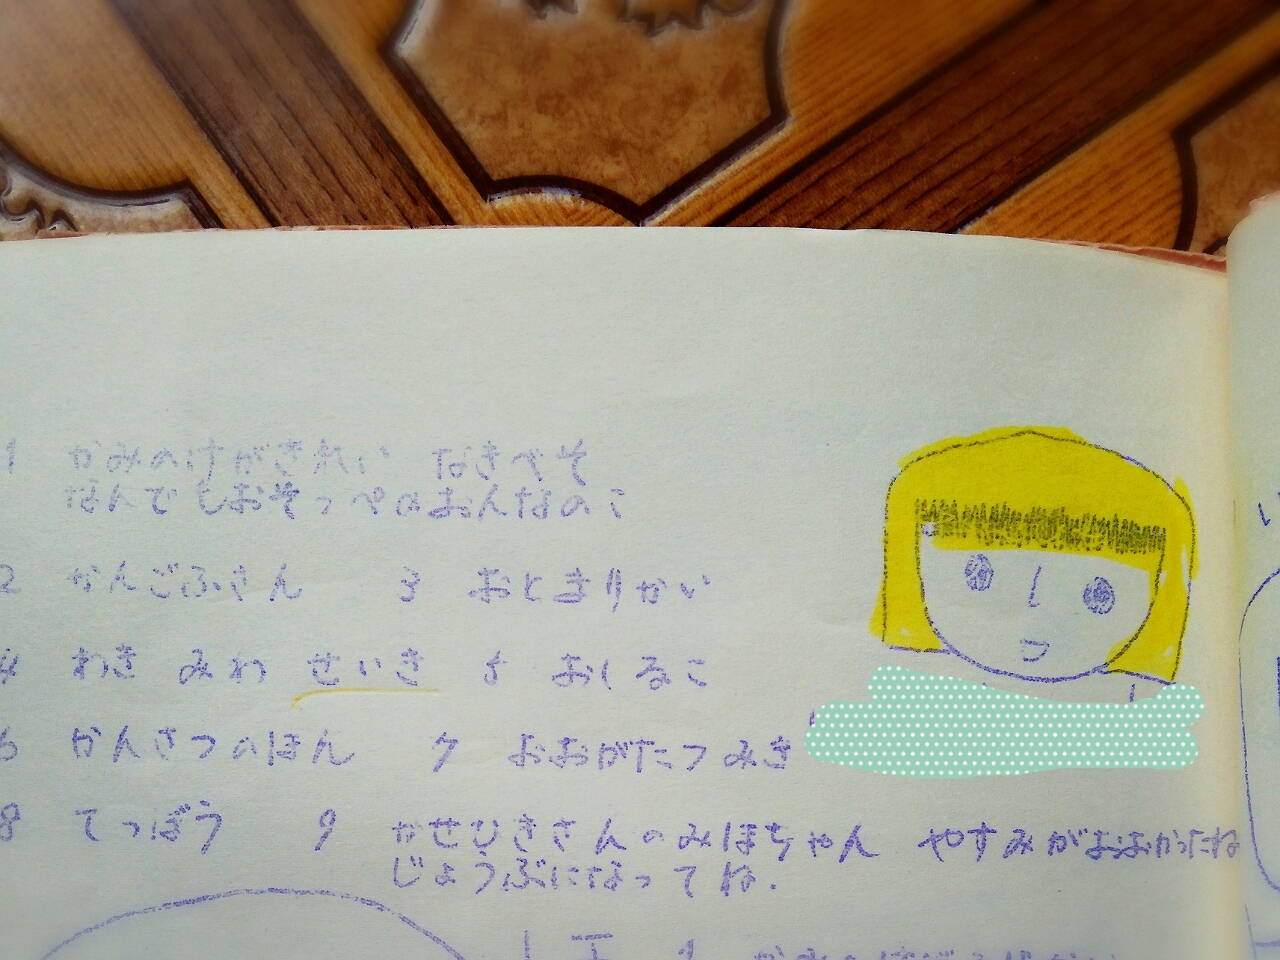 1 かみのけがきれい なきべそ
なんでもおそっぺのおんなのこ
2 かんごふさん 3 おとまりかい
4 わき みわ せいき 5 おしるこ
6 かんさつのほん 7 おおがたつみき
8 てつぼう 9 かぜひきさんのみほちゃん やすみがおおかったね
じょうぶになってね.